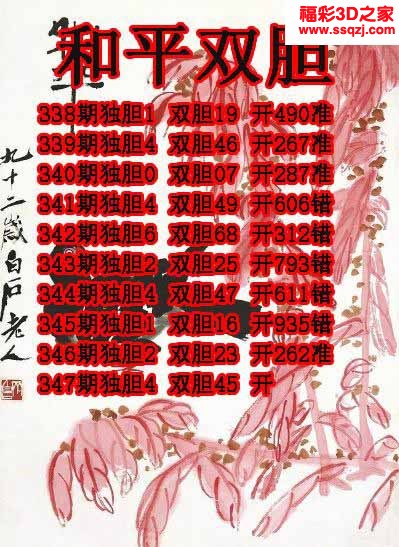 福彩3D之家
www.ssqzj.com
和平双胆
338期独胆1 双胆19 开490准
339期独胆4 双胆46 开267准
340期独胆0 双胆07 开287准
341期独胆4 双胆49 开606错
342期独胆6 双胆68 开312错
343期独胆2 双胆25 开793错
344期独胆4 双胆47 开611错
345期独胆1 双胆16 开935错
346期独胆2 双胆23 开262准
347期独胆4 双胆45 开
九十二岁白石老人